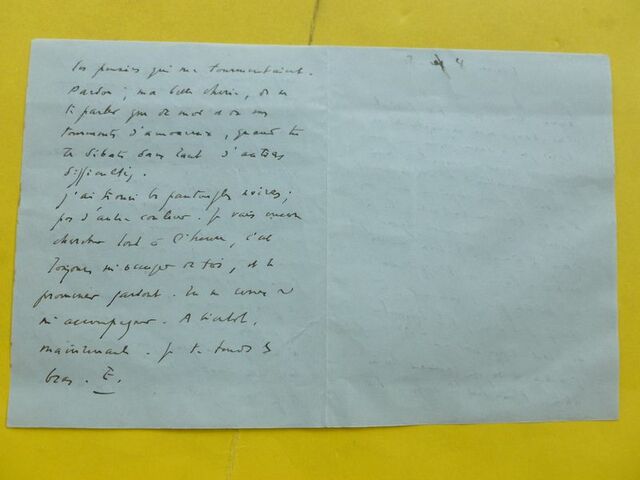 les pensées qui me tourmentaient.
Pardon, ma belle chérie, de ne
te parler que de moi et de mes
tourments d'amoureux, quand tu
te débats dans tant d'autres
difficultés.
J'ai trouvé les pantoufles noires ;
pas d'autre couleur. Je vais encore
chercher tout à l'heure, c'est
toujours m'occuper de toi, et te
promener partout. Tu ne cesses de
m'accompagner. A bientôt,
maintenant. Je te tends les
bras. E.